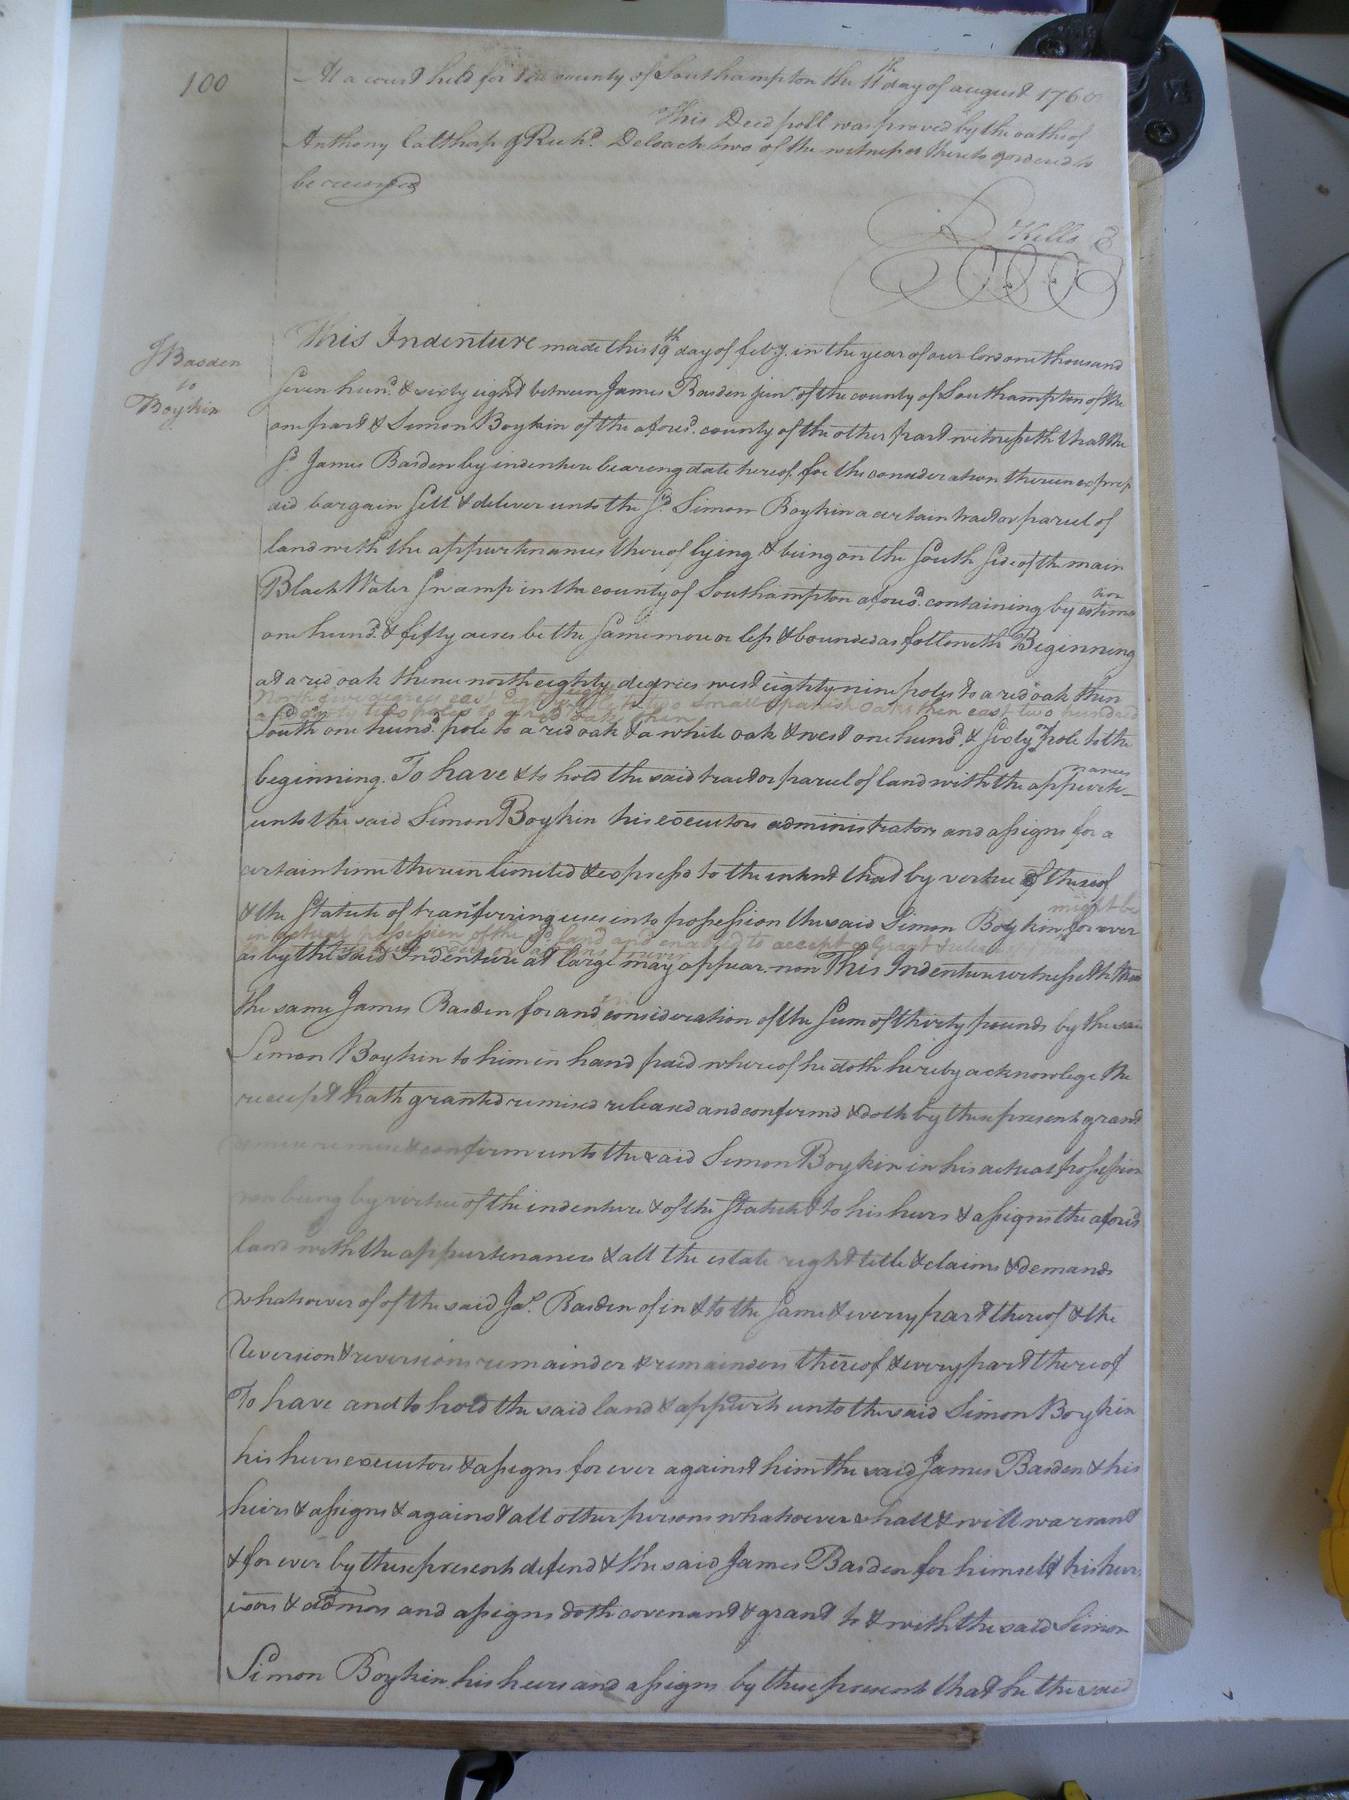 100
At a court held for the county of Southampton the 11th day of august 1768
This Deed poll was proved by the oaths of
Anthony Calthorp & Richd. Deloach two of the witnesses thereto & ordered to
be recorded
Kello
J Basden
to
Boykin
This Indenture made this 19th day of feby. in the year of our lord one thousand
seven hund. & sixty eight between James Basden jun. of the county of Southampton of the
one part & Simon Boykin of the afores.d county of the other part witnesseth that the
sd. James Basden by indenture bearing date hereof for the consideration therein exprep
did bargain sell & deliver unto the sd. Simon Boykin a certain tract or parcel of
land with the appurtenances thereof lying & being on the south side of the main
Black Water swamp in the county of Southampton afousd. containing by estima
tion
one hund. & fifty acres be the same more or less & bounded as followeth Beginning
at a red oak thence north eighty degrees west eighty nine poles to a red oak then
North five degrees east eighty eight to two small spanish oaks then east two hundred
and forty two poles to a red oak then
South one hund. pole to a red oak & a white oak & west one hund. & sixty pole to the
beginning. To have & to hold the said tract or parcel of land with the appurte
nances
unto the said Simon Boykin his executors administrators and assigns for a
certain time therein limited & express to the intent that by vertue of thereof
& the Statute of transferring uses into possession the said Simon Boykin for ever
might be
in actual possession of the sd. land and enabled to accept a Grant &
as by the said Indenture at large may appear. now This Indenture witnesseth that
the same James Basden for and consideration of the sum of thirty pounds by the said
Simon Boykin to him in hand paid whereof he doth hereby acknowlege the
receipt hath granted remised released and confirmd & doth by these present grant
remise & confirm unto the said Simon Boykin in his actual possession
now being by vertue of the indenture & of the Statute & to his heirs & assigns the aforsd
land with the appurtenances & all the estate right title & claims & demands
whatsoever of of the said Jas. Basden of in & to the same & every part thereof & the
Reversion & reversions remainder & remainders thereof & every part thereof
To have and to hold the said land & appurts unto the said Simon Boykin
his heirs executors & assigns for ever against him the said James Basden & his
heirs & assigns & against all other persons whatsoever shall & will warrant
& for ever by these presents defend & the said James Basden for himself his heirs
exors & admors and assigns doth covenant & grant to & with the said Simon
Simon Boykin his heirs and assigns by these presents that he the said